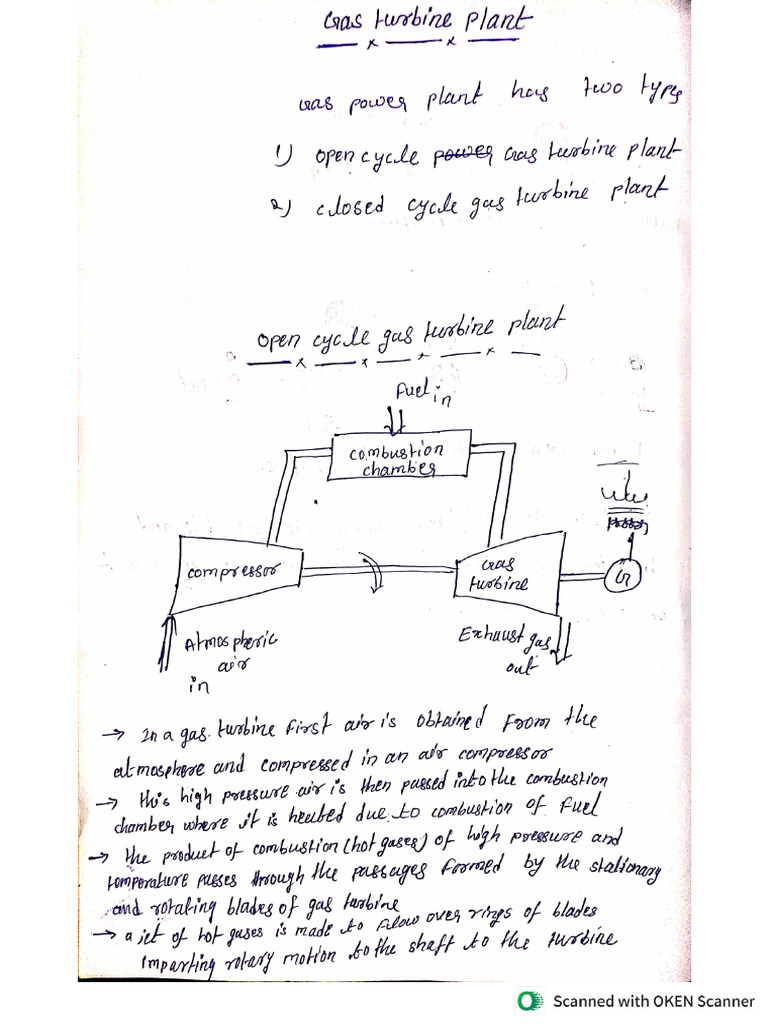 Gas turbine plant
Gas power plant has two types
1) open cycle power Gas turbine plant
2) closed cycle gas turbine plant
open cycle gas turbine plant
Fuel in
combustion
chamber
compressor
Gas
turbine
G
Atmospheric
air
in
Exhaust gas
out
→ In a gas turbine first air is obtained from the
atmosphere and compressed in an air compressor
→ this high pressure air is then passed into the combustion
chamber where it is heated due to combustion of fuel
→ the product of combustion (hot gases) of high pressure and
temperature passes through the passages formed by the stationary
and rotating blades of gas turbine
→ a jet of hot gases is made to flow over rings of blades
imparting rotary motion to the shaft to the turbine
Scanned with OKEN Scanner